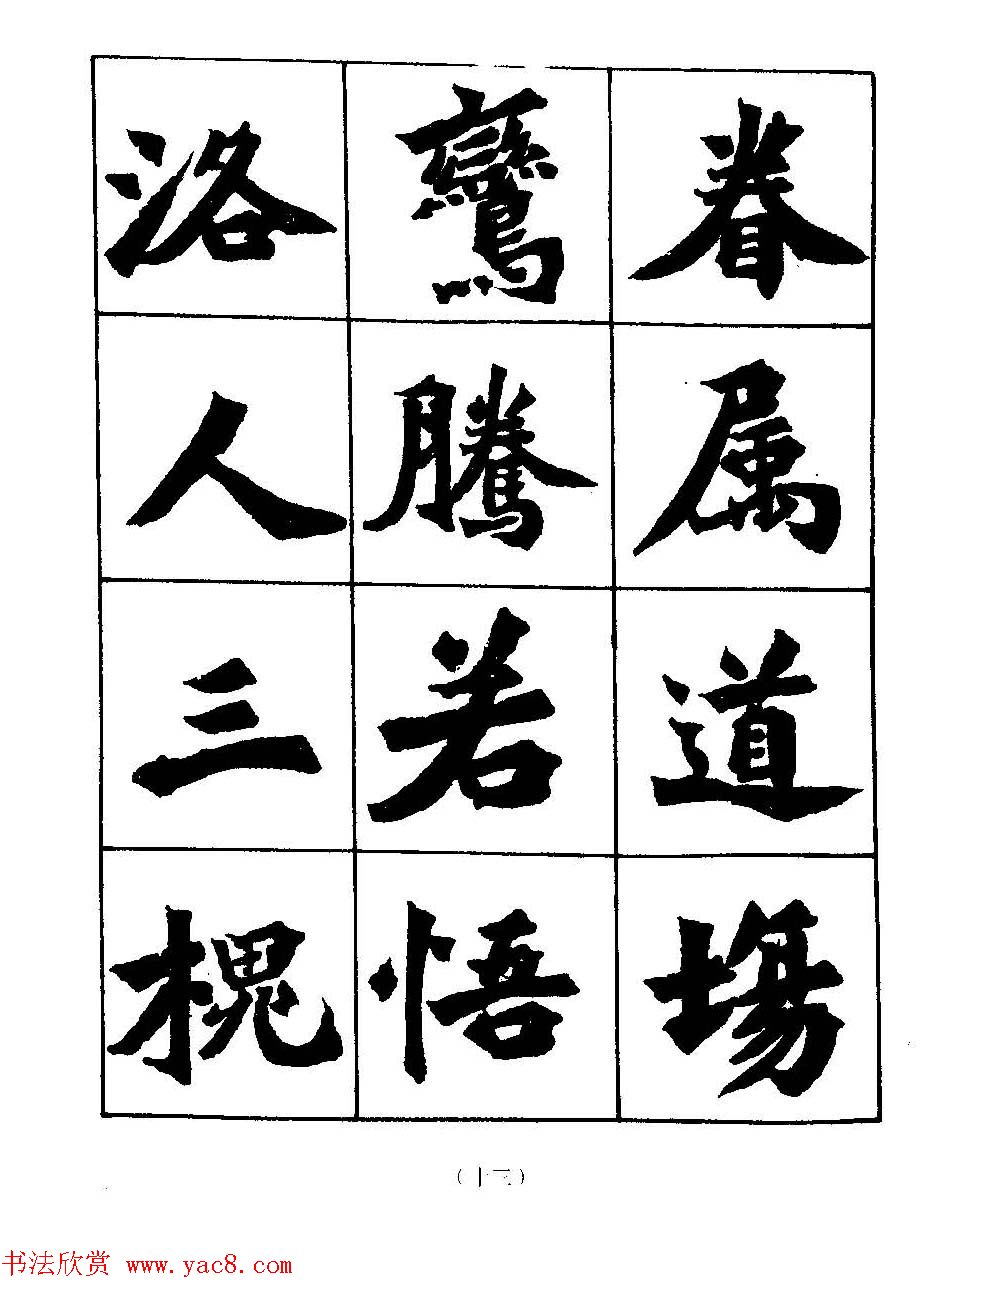 眷属道場
鸞騰若悟
洛人三槐
(十三)
书法欣赏 www.yac8.com